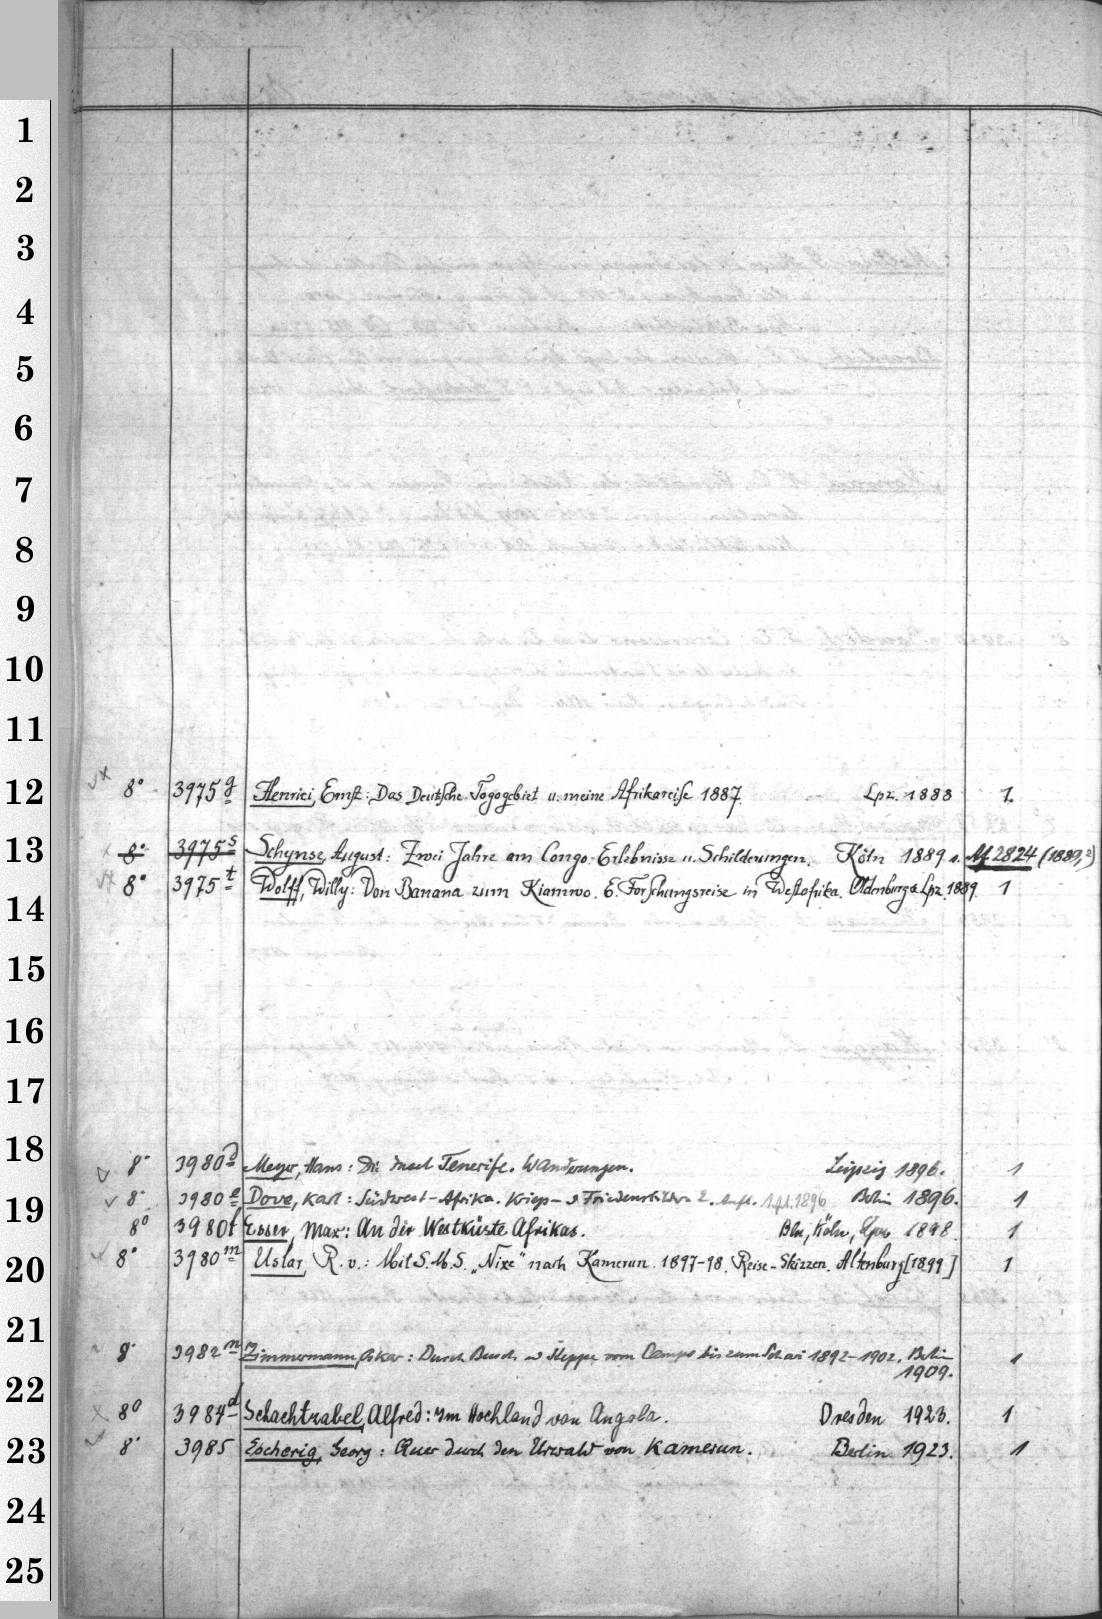 1
2
3
4
5
6
7
8
9
10
11
12
8° 3975 g Henrici, Ernst: Das Deutsche Togogebiet u. meine Afrikareise 1887 Lpz. 1888 1.
13
8° 3975 s Schynse, August: Zwei Jahre am Congo. Erlebnisse u. Schilderungen. Köln 1889 s. Af 2824 (1889,2)
8° 3975 t Wolff, Willy: Von Banana zum Kiamwo. E. Forschungsreise in Westafrika. Oldenburg & Lpz. 1889. 1
14
15
16
17
18
8° 3980 d Meyer, Hans: Die Insel Tenerife. Wanderungen. Leipzig 1896. 1
19
8° 3980 e Dove, Karl: Südwest-Afrika. Kriegs- u Friedensbilder 2. Aufl. 1896 Berlin 1896. 1
8° 3980 f Esser, Max: An der Westküste Afrikas. Bln, Köln, Lpz. 1898. 1
20
8° 3980 m Uslar, R. v.: Mit S.M.S. „Nixe" nach Kamerun 1897-98. Reise-Skizzen. Altenburg [1899] 1
21
8° 3982 m Zimmermann, Oskar: Durch Busch u Steppe vom Campo bis zum Schari 1892-1902. Berlin
1909. 1
22
8° 3984 d Schachtzabel, Alfred: Im Hochland von Angola. Dresden 1923. 1
23
8° 3985 Escherig, Georg: Quer durch den Urwald von Kamerun. Berlin 1923. 1
24
25